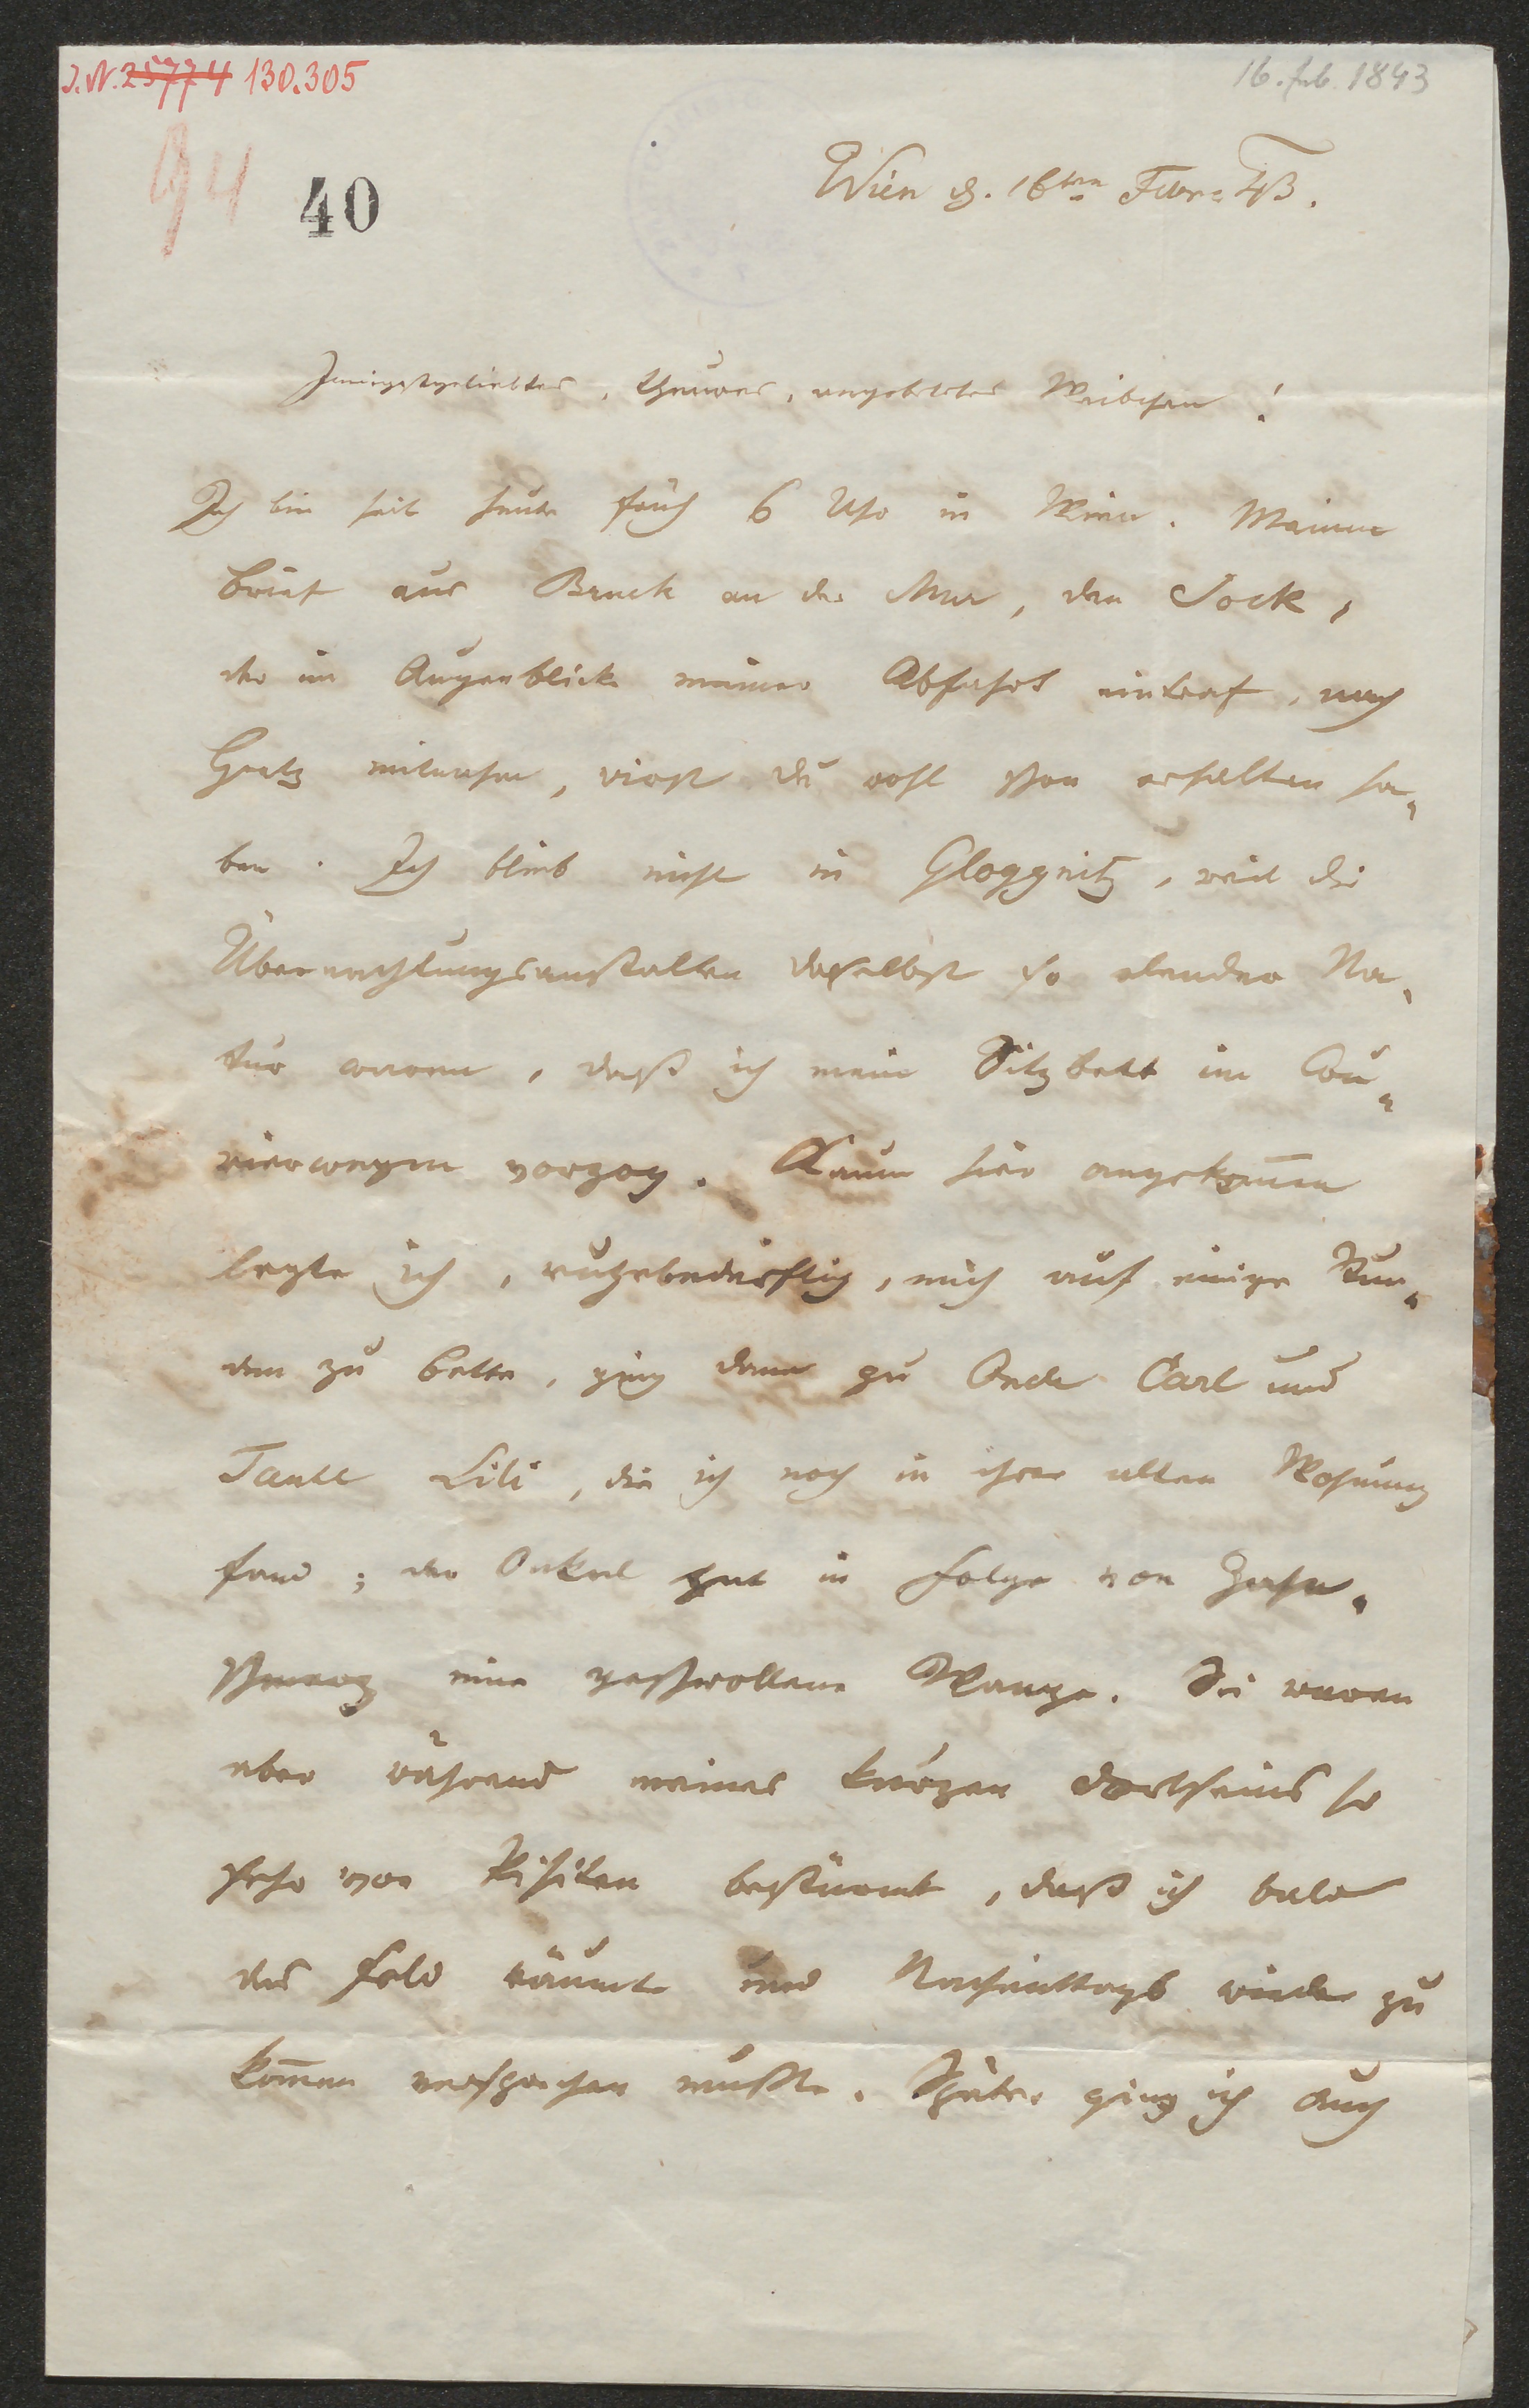 J.N. 25774 130.305
16. Feb. 1843
94
40
Wien d. 16ten Febr. 43.
Innigstgeliebtes, theures, angebetetes Weibchen!
Ich bin seit heute früh 6 Uhr in Wien. Meinen
Brief aus Bruck an der Mur, den Sock,
der im Augenblicke meiner Abfahrt eintraf, nach
Gratz mitnahm, wirst du wohl schon erhalten ha„
ben. Ich blieb nicht in Gloggnitz, weil die
Übernachtungsanstalten daselbst so elender Na„
tur waren, daß ich mein Sitzbett im Cou„
rierwagen vorzog. Kaum hier angekom̅en
legte ich, ruhebedürftig, mich auf einige Stun„
den zu Bette, ging dann zu Onckl Carl und
Tante Lili, die ich noch in ihrer alten Wohnung
fand; der Onkel hat in Folge von Zahn„
schmerz eine geschwollene Wange. Sie waren
aber während meines kurzen Dortseins so
sehr von Visiten bestürmt, daß ich bald
das Feld räumte und Nachmittags wieder zu
kom̅en versprechen mußte. Später ging ich auch